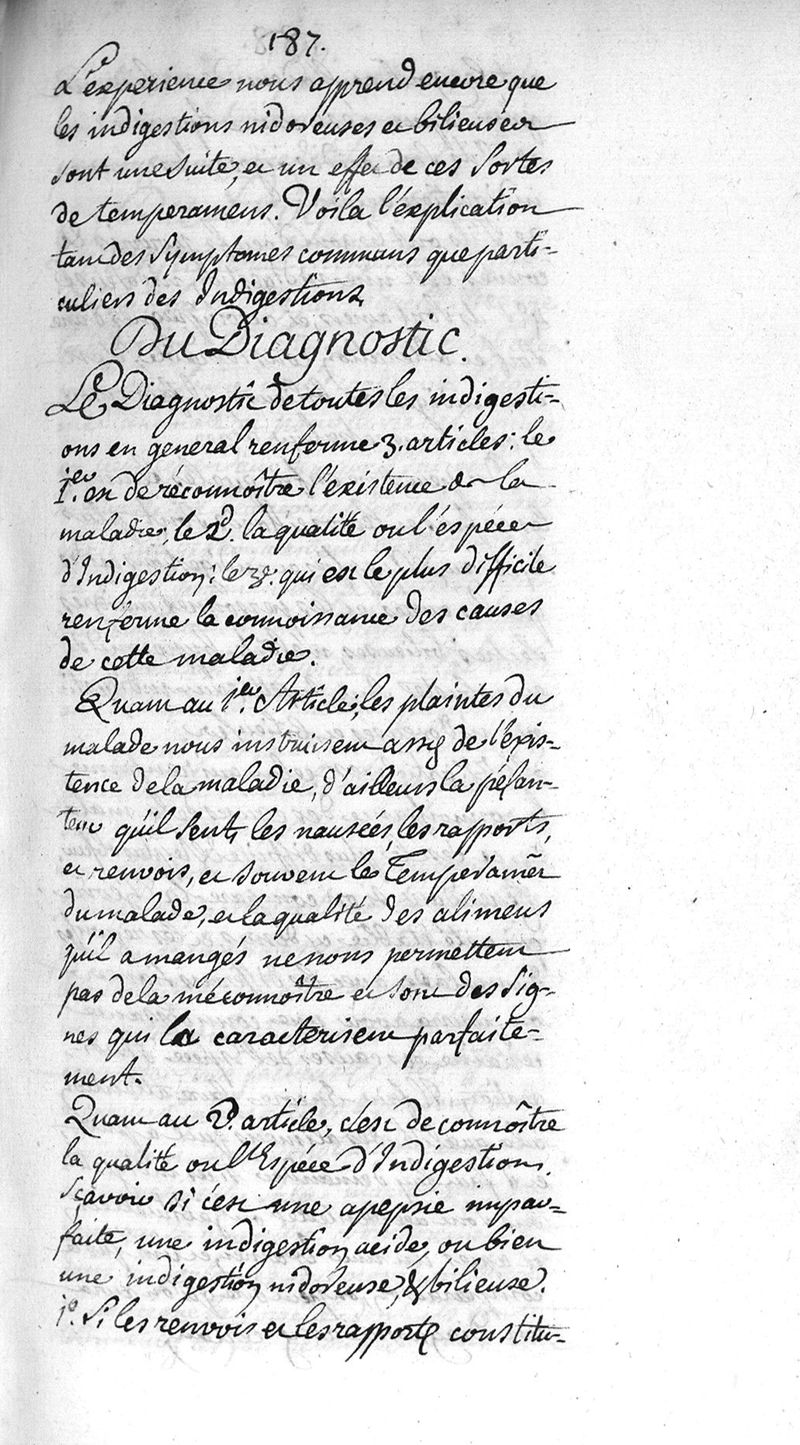 187.
L'experience nous apprend encore que
les indigestions nidoreuses et bilieuses
sont une suite, et un effet de ces sortes
de temperamens. Voila l'explication
tant des symptomes communs que parti-
culiers des Indigestions.
Du Diagnostic.
Le Diagnostic de toutes les indigesti-
ons en general renferme 3. articles: le
1.er est de réconnoître l'éxistence de la
maladie, le 2.d la qualité ou l'espéce
d'Indigestion: le 3.e qui est le plus difficile
renferme la connoissance des causes
de cette maladie.
Quant au 1.er Article, les plaintes du
malade nous instruisent assés de l'éxis-
tence de la maladie, d'ailleurs la pésan-
teur qu'il sent, les nausées, les rapports,
et renvois, et souvent le Temperamēt
du malade, et la qualité des alimens
qu'il a mangés ne nous permettent
pas de la méconnoître et sont des sig-
nes qui la caracterisent parfaite-
ment.
Quant au 2.d article, c'est de connoître
la qualité ou l'Espéce d'Indigestion.
sçavoir si c'est une apepsie impar-
faite, une indigestion acide, ou bien
une indigestion nidoreuse, & bilieuse.
1.o Si les renvois et les rapports constitu-